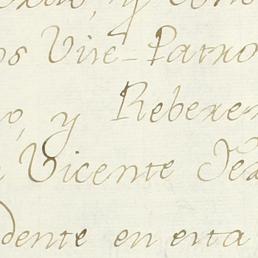 y
os Vire-Patro
o, y Rebere
Vicente
dente en esta